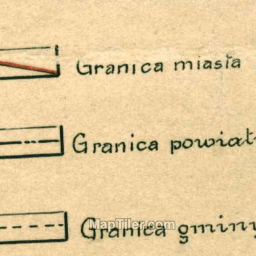 Granica miasta
Granica powiat
Granica gminy
MapTiler.com